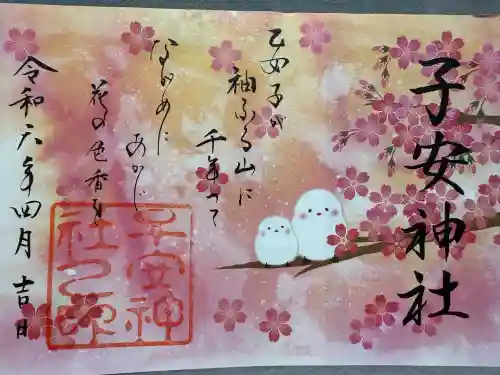 子安神社
乙女子が
袖ふる山に
千年へて
ながめに
あかじ
花の色香を
令和六年四月 吉日
子安神
社之印